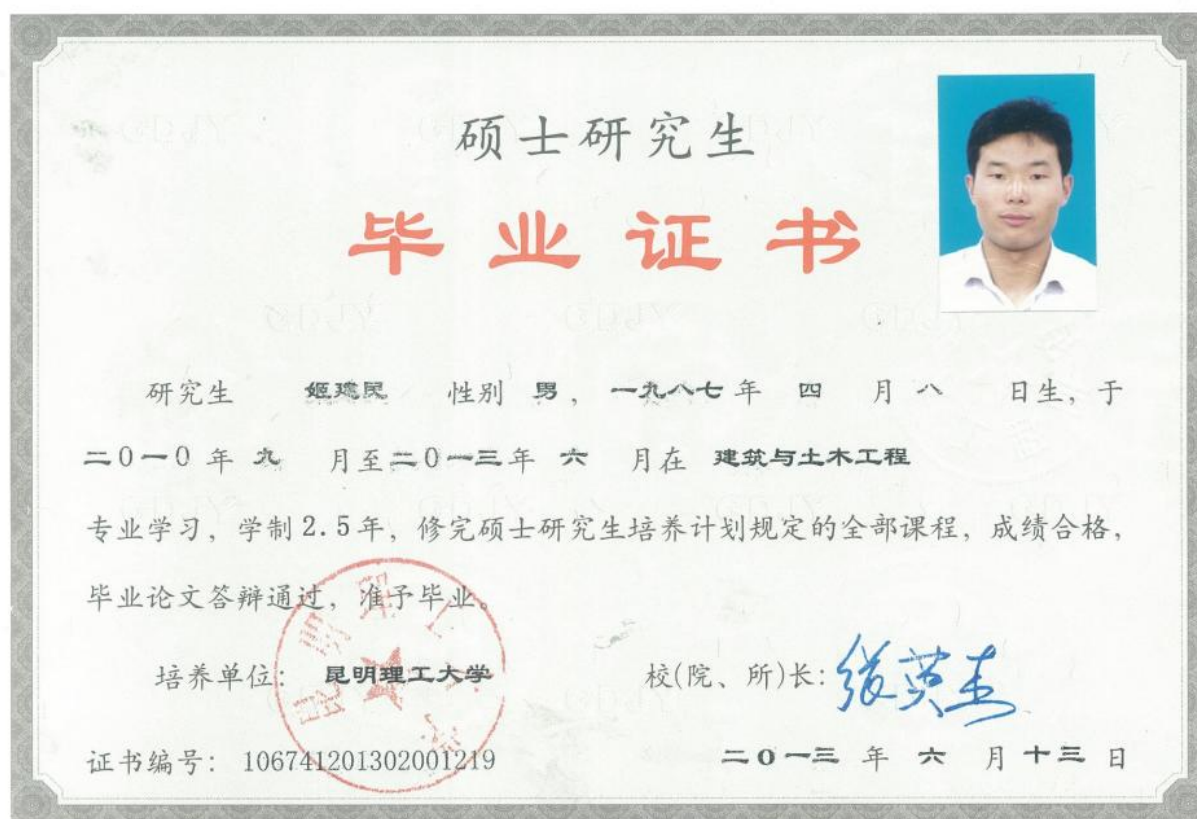 硕士研究生
毕业证书
研究生 姬建民 性别 男，一九八七年 四 月 八 日生，于
二0一0 年 九 月至二0一三年 六 月在 建筑与土木工程
专业学习，学制 2.5 年，修完硕士研究生培养计划规定的全部课程，成绩合格，
毕业论文答辩通过，准予毕业。
培养单位： 昆明理工大学
校(院、所)长：张英杰
证书编号：106741201302001219
二0一三 年 六 月 十三 日
昆明理工大学